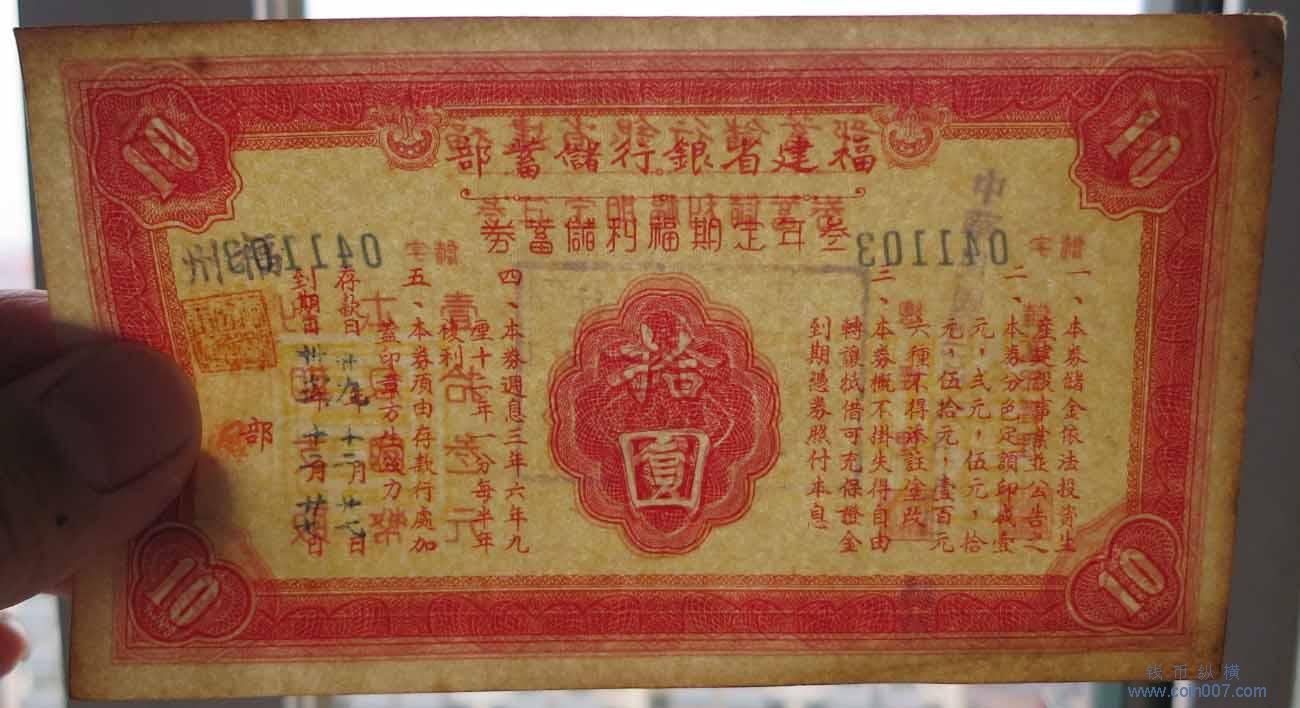 福建省銀行儲蓄部
叁年定期福利儲蓄券
041103
041103
一、本券儲金依法投資生
產建設事業並公告之
二、本券分色定額印成壹
元，弍元，伍元，拾
元，伍拾元，壹百元
六種不得添註塗改
三、本券概不掛失得自由
轉讓抵借可充保證金
到期憑券照付本息
拾
圓
四、本券週息三年六年九
厘十年一分每半年
複利
五、本券須由存款行處加
蓋印章方生效力
存款日 廿九年十二月廿七日
到期日 年十二月日
福州
部
10
10
10
10
钱币纵横
www.coin007.com